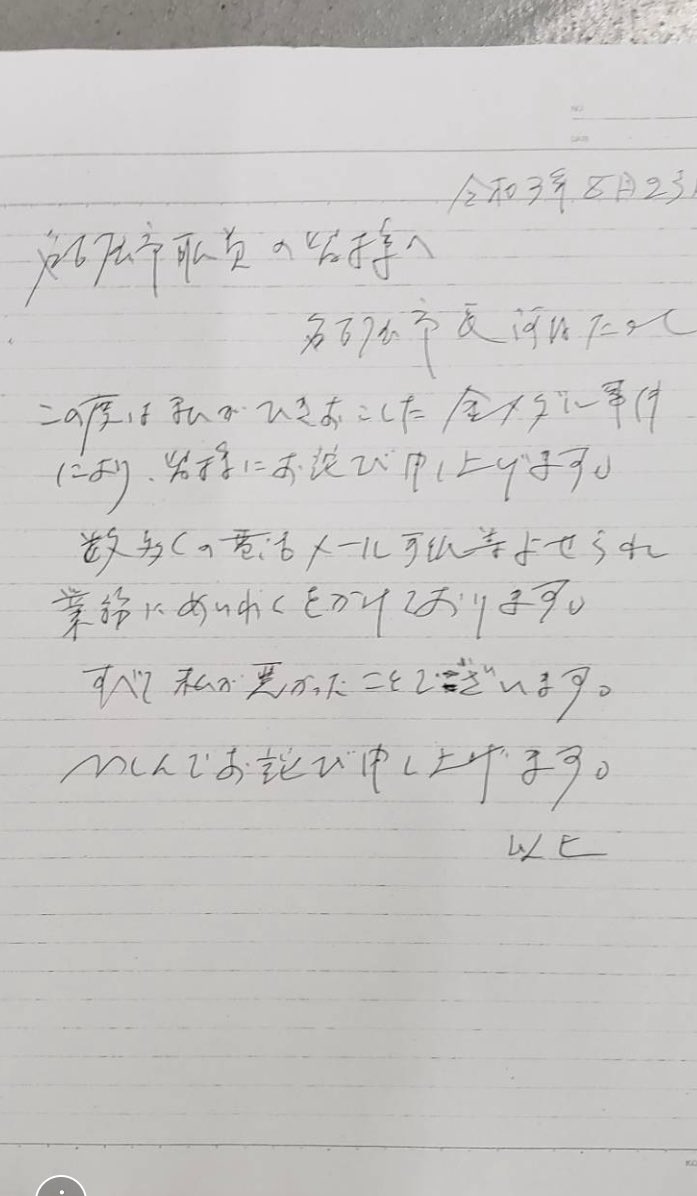 NO
DATE
令和3年8月23
名古屋市職員の皆様へ
名古屋市長 河村たかし
この度は私がひきおこした金メダル事件
により、皆様にお詫び申し上げます。
数多くの電話メール手紙等よせられ
業務にめいわくをかけております。
すべて私が悪かったことでございます。
つつしんでお詫び申し上げます。
以上